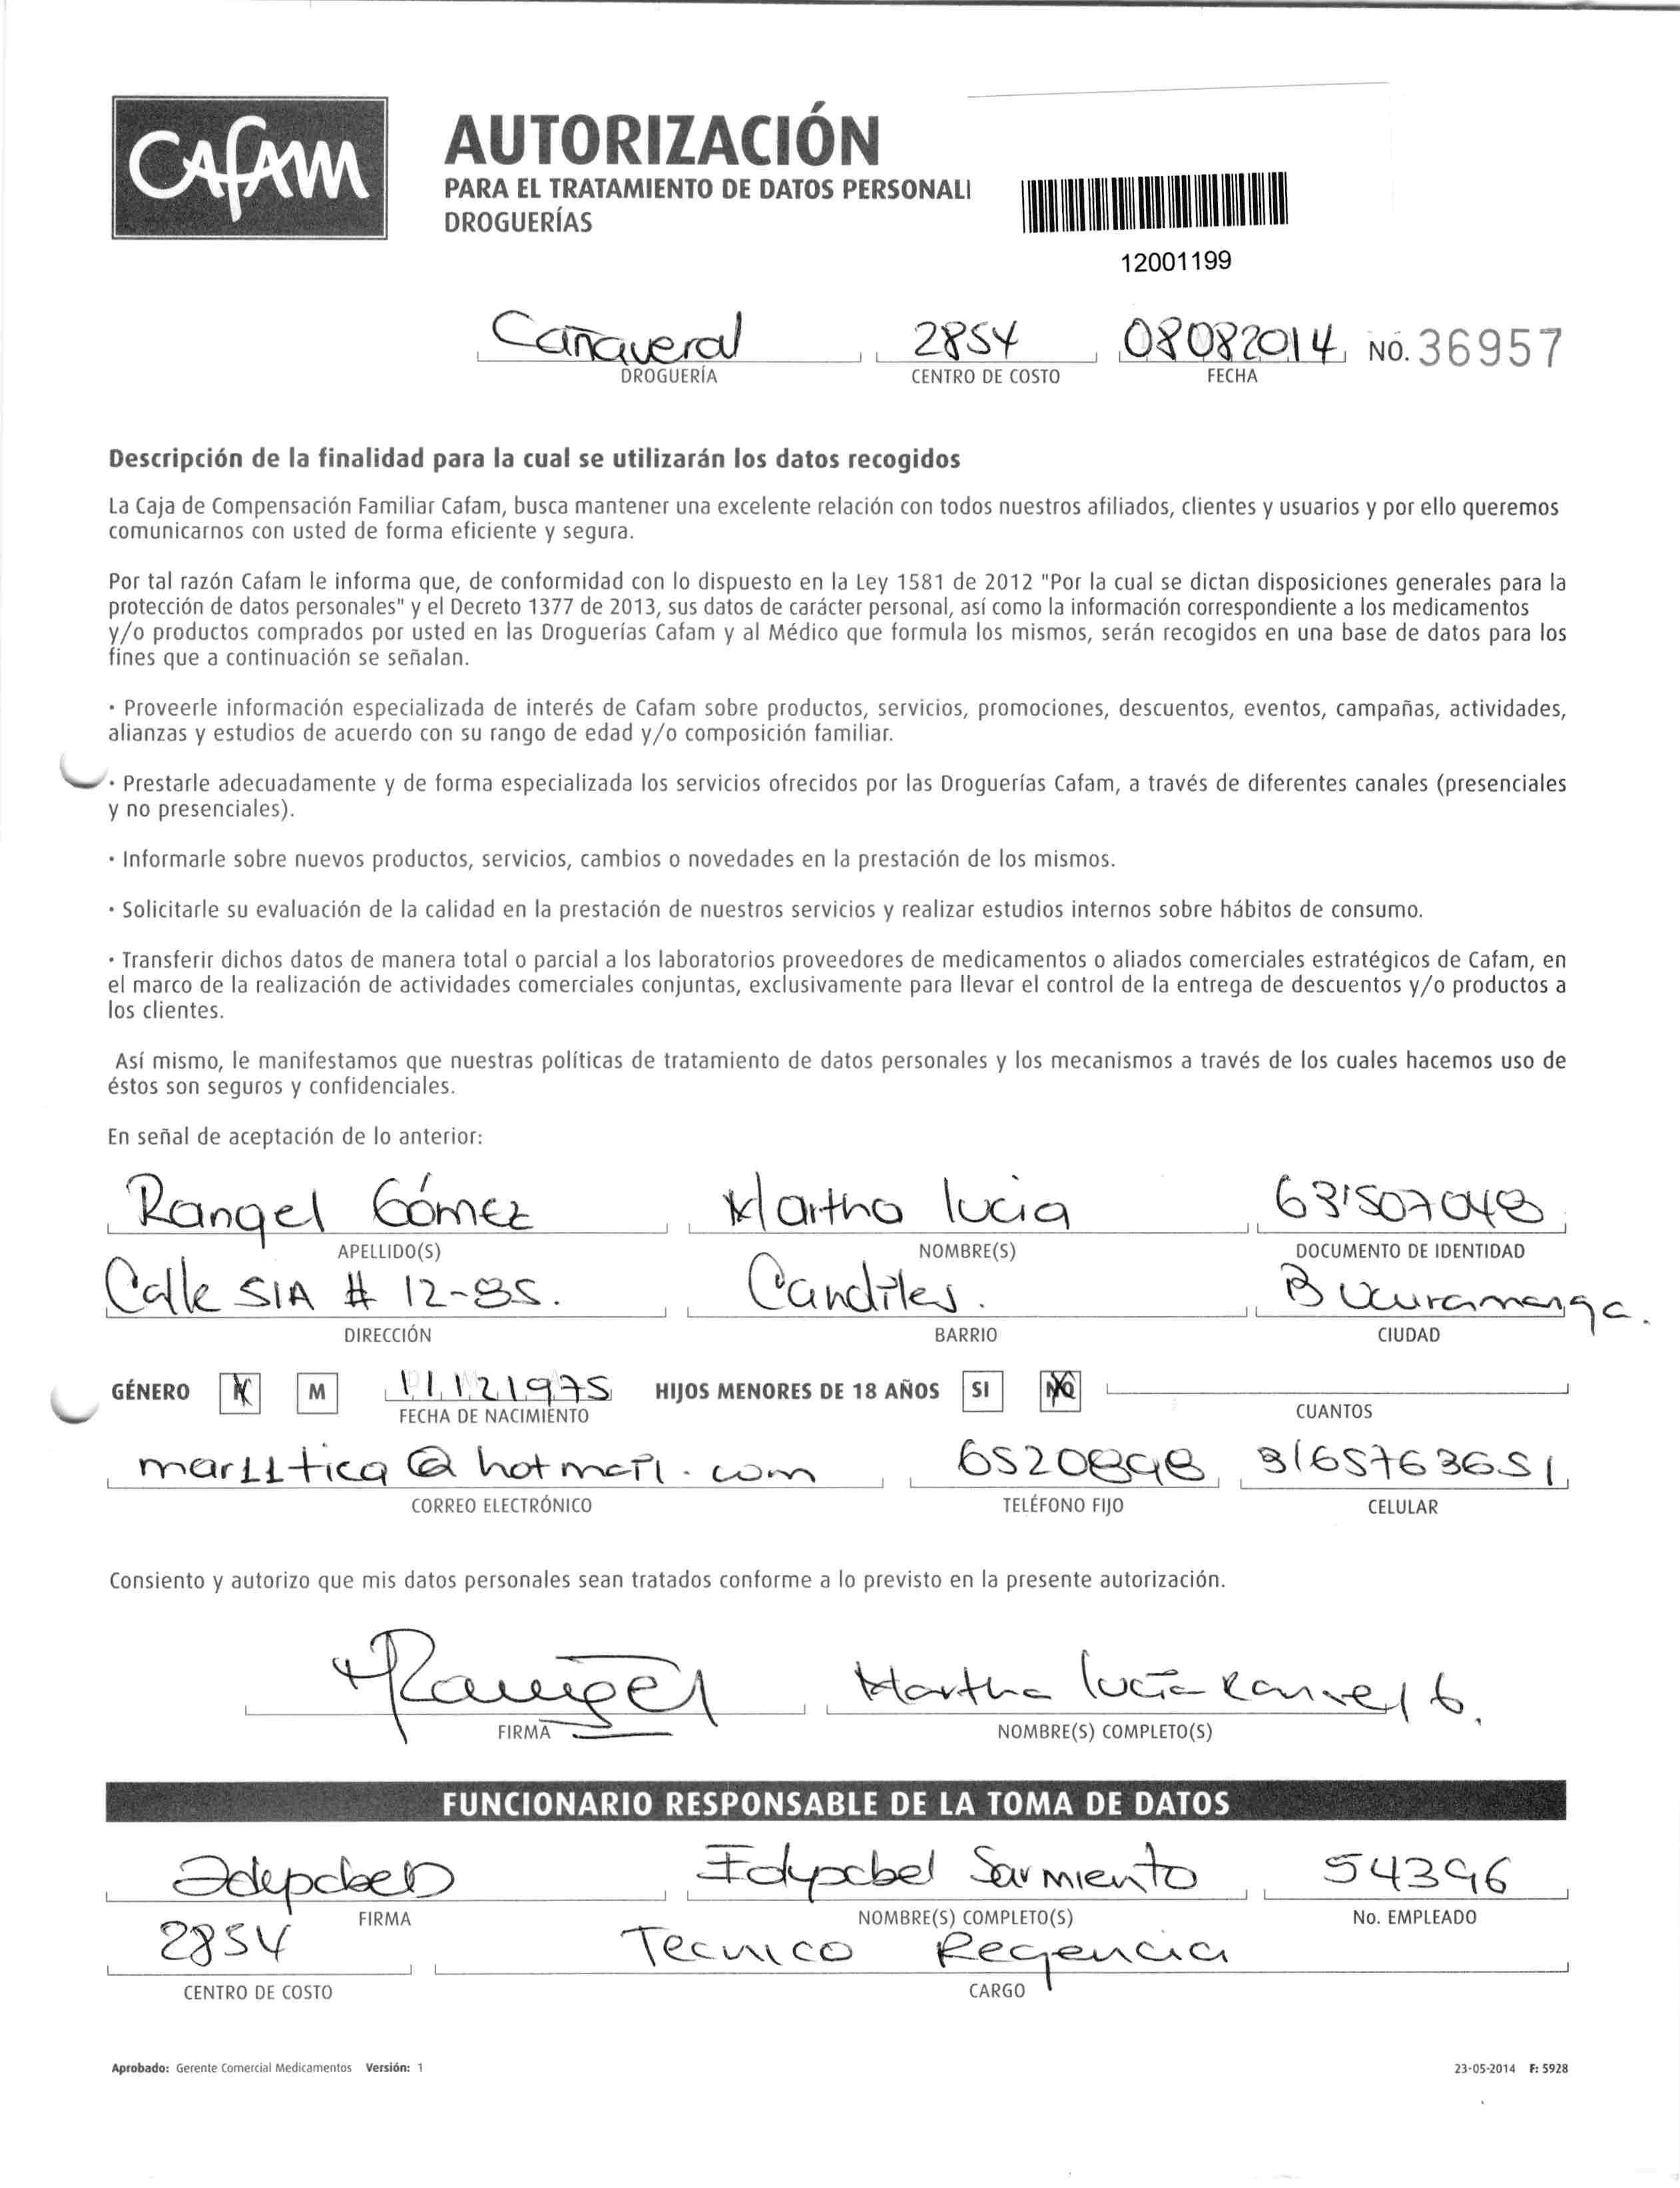 CAFAM
AUTORIZACIÓN
PARA EL TRATAMIENTO DE DATOS PERSONALI
DROGUERÍAS
12001199
Cañaveral 2854 08082014 NO. 36957
DROGUERÍA CENTRO DE COSTO FECHA
Descripción de la finalidad para la cual se utilizarán los datos recogidos
La Caja de Compensación Familiar Cafam, busca mantener una excelente relación con todos nuestros afiliados, clientes y usuarios y por ello queremos
comunicarnos con usted de forma eficiente y segura.
Por tal razón Cafam le informa que, de conformidad con lo dispuesto en la Ley 1581 de 2012 "Por la cual se dictan disposiciones generales para la
protección de datos personales" y el Decreto 1377 de 2013, sus datos de carácter personal, así como la información correspondiente a los medicamentos
y/o productos comprados por usted en las Droguerías Cafam y al Médico que formula los mismos, serán recogidos en una base de datos para los
fines que a continuación se señalan.
· Proveerle información especializada de interés de Cafam sobre productos, servicios, promociones, descuentos, eventos, campañas, actividades,
alianzas y estudios de acuerdo con su rango de edad y/o composición familiar.
· Prestarle adecuadamente y de forma especializada los servicios ofrecidos por las Droguerías Cafam, a través de diferentes canales (presenciales
y no presenciales).
· Informarle sobre nuevos productos, servicios, cambios o novedades en la prestación de los mismos.
· Solicitarle su evaluación de la calidad en la prestación de nuestros servicios y realizar estudios internos sobre hábitos de consumo.
· Transferir dichos datos de manera total o parcial a los laboratorios proveedores de medicamentos o aliados comerciales estratégicos de Cafam, en
el marco de la realización de actividades comerciales conjuntas, exclusivamente para llevar el control de la entrega de descuentos y/o productos a
los clientes.
Así mismo, le manifestamos que nuestras políticas de tratamiento de datos personales y los mecanismos a través de los cuales hacemos uso de
éstos son seguros y confidenciales.
En señal de aceptación de lo anterior:
Rangel Gómez Martha lucia
APELLIDO(S) NOMBRE(S) DOCUMENTO DE IDENTIDAD
Calle 51A # 12-85. Candiles. Bucuramanga.
DIRECCIÓN BARRIO CIUDAD
GÉNERO M 11121975 HIJOS MENORES DE 18 AÑOS SI NO
FECHA DE NACIMIENTO CUANTOS
6520898 3165763651
CORREO ELECTRÓNICO TELÉFONO FIJO CELULAR
Consiento y autorizo que mis datos personales sean tratados conforme a lo previsto en la presente autorización.
Rangel Martha lucia Rangel G.
FIRMA NOMBRE(S) COMPLETO(S)
FUNCIONARIO RESPONSABLE DE LA TOMA DE DATOS
Sarmiento 54396
FIRMA NOMBRE(S) COMPLETO(S) No. EMPLEADO
2854 Tecnico Regencia
CENTRO DE COSTO CARGO
Aprobado: Gerente Comercial Medicamentos Versión: 1 23-05-2014 F: 5928